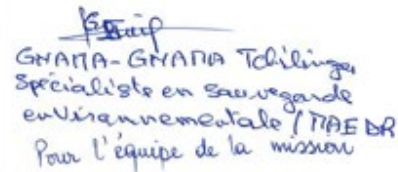 GNAMA-GNAMA Tchilinga
Spécialiste en sauvegarde
environnementale / MAEDR
Pour l'équipe de la mission